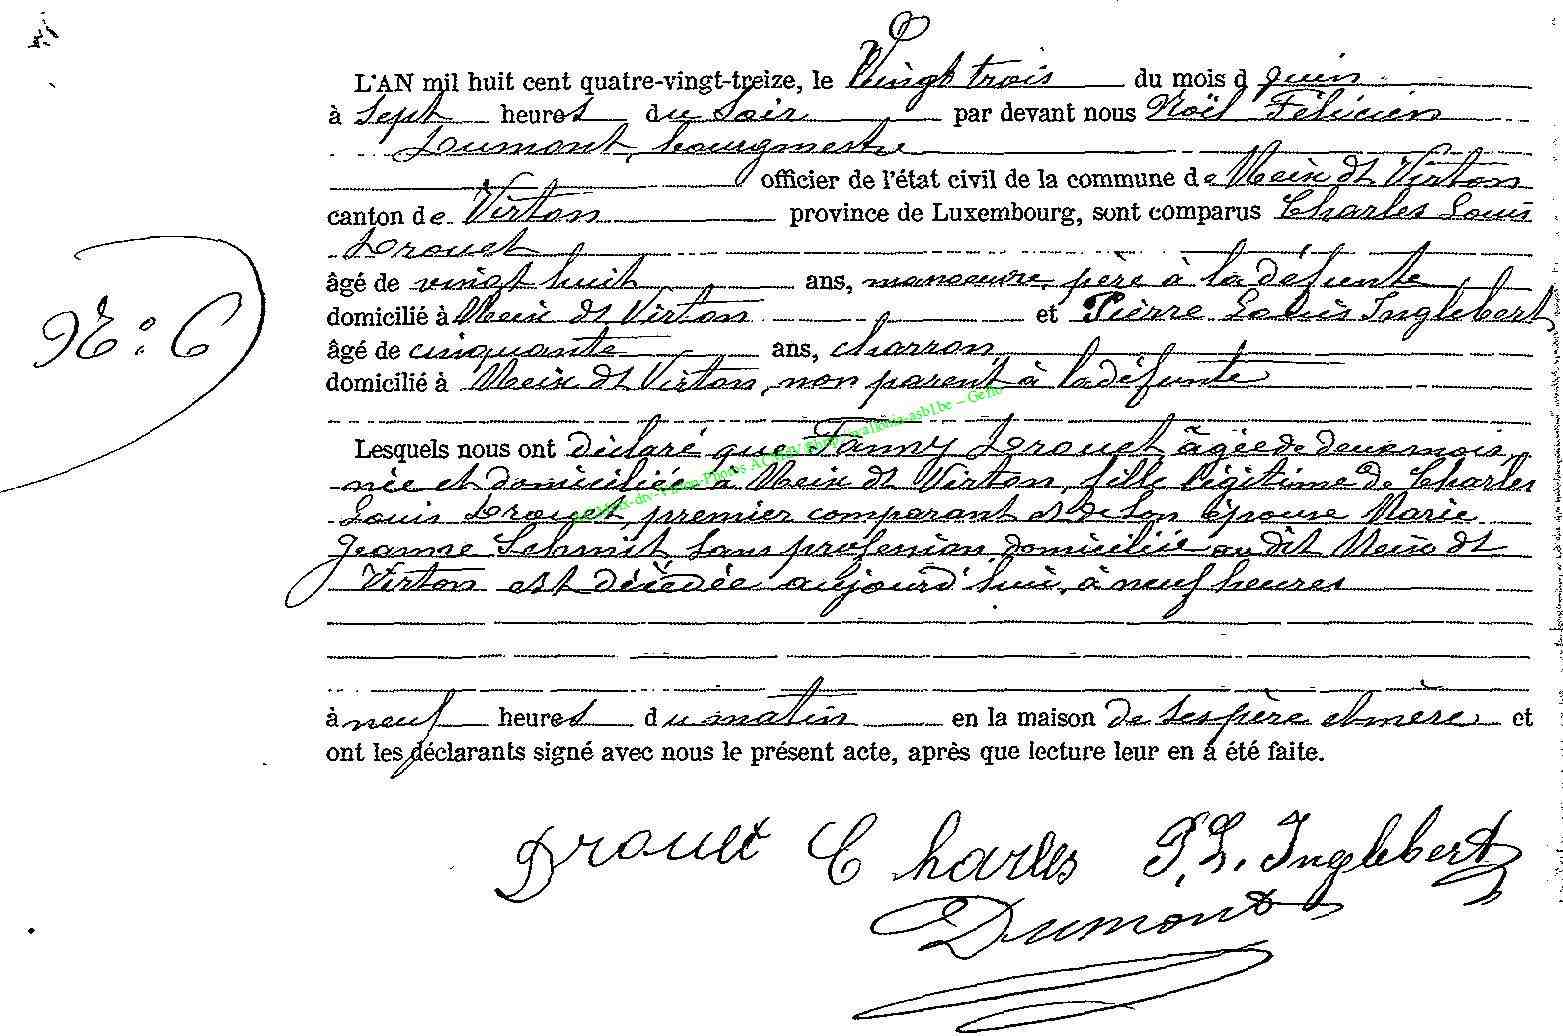 L'AN mil huit cent quatre-vingt-treize, le Vingt trois du mois d juin
à sept heures du soir par devant nous Noël Félicien
Dumont, bourgmestre
officier de l'état civil de la commune de Meix dt Virton
canton de Virton province de Luxembourg, sont comparus Charles Louis
Drouet
âgé de vingt huit ans, manoeuvre, père à la défunte
domicilié à Meix dt Virton et Pierre Louis Inglebert
âgé de cinquante ans, charron,
domicilié à Meix dt Virton, non parent à la défunte
Lesquels nous ont déclaré que Fanny Drouet âgée de deux mois,
née et domiciliée à Meix dt Virton, fille légitime de Charles
N: 6
Louis Drouet, premier comparant et de son épouse Marie
Jeanne Schmit, sans profession, domiciliée au dit Meix dt
Virton est décédée aujourd'hui, à neuf heures
à neuf heures du matin en la maison de ses père et mère et
ont les déclarants signé avec nous le présent acte, après que lecture leur en a été faite.
Drouet Charles P. L. Inglebert
Dumont